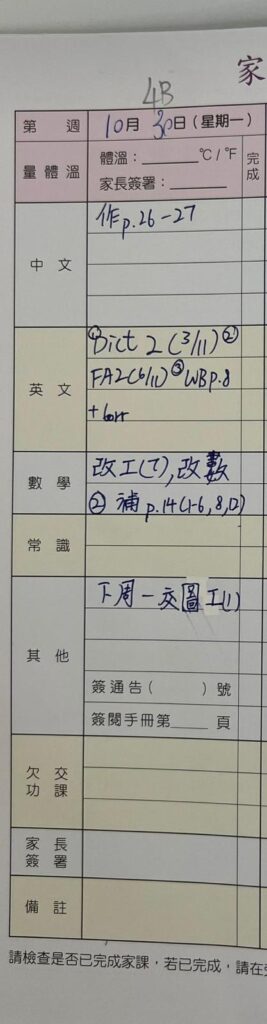 家
4B
第 週 10月 30日 (星期一)
量體溫 體溫：______ °C / °F 完成
家長簽署：______
中文 作p.26-27
英文 ①Dict 2 (3/11) ②
FA2(6/11) ③WB p.8
+ corr
數學 改工(7), 改數
② 補 p.14(1-6, 8, 12)
常識
其他 下周一交圖工(1)
簽通告 ( ) 號
簽閱手冊第____ 頁
欠交功課
家長簽署
備註
請檢查是否已完成家課，若已完成，請在